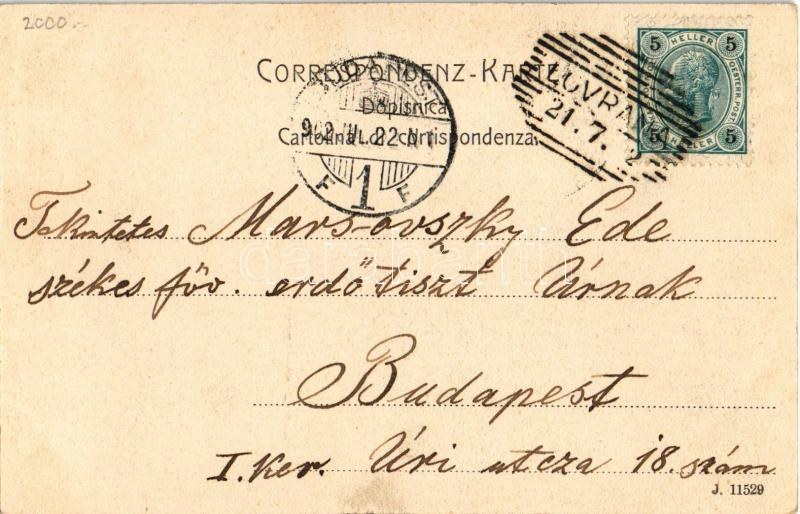 2000.-
CORRESPONDENZ-KARTE
Dopisnica
Cartolina di corrispondenza
5 HELLER 5
5 HELLER 5
LOVRANA
21.7.2
902. JUL. 22 N1
F 1 F
Tekintetes Marsovszky Ede
székes föv. erdőtiszt Úrnak
Budapest
I. ker. Úri utcza 18. szám
J. 11529